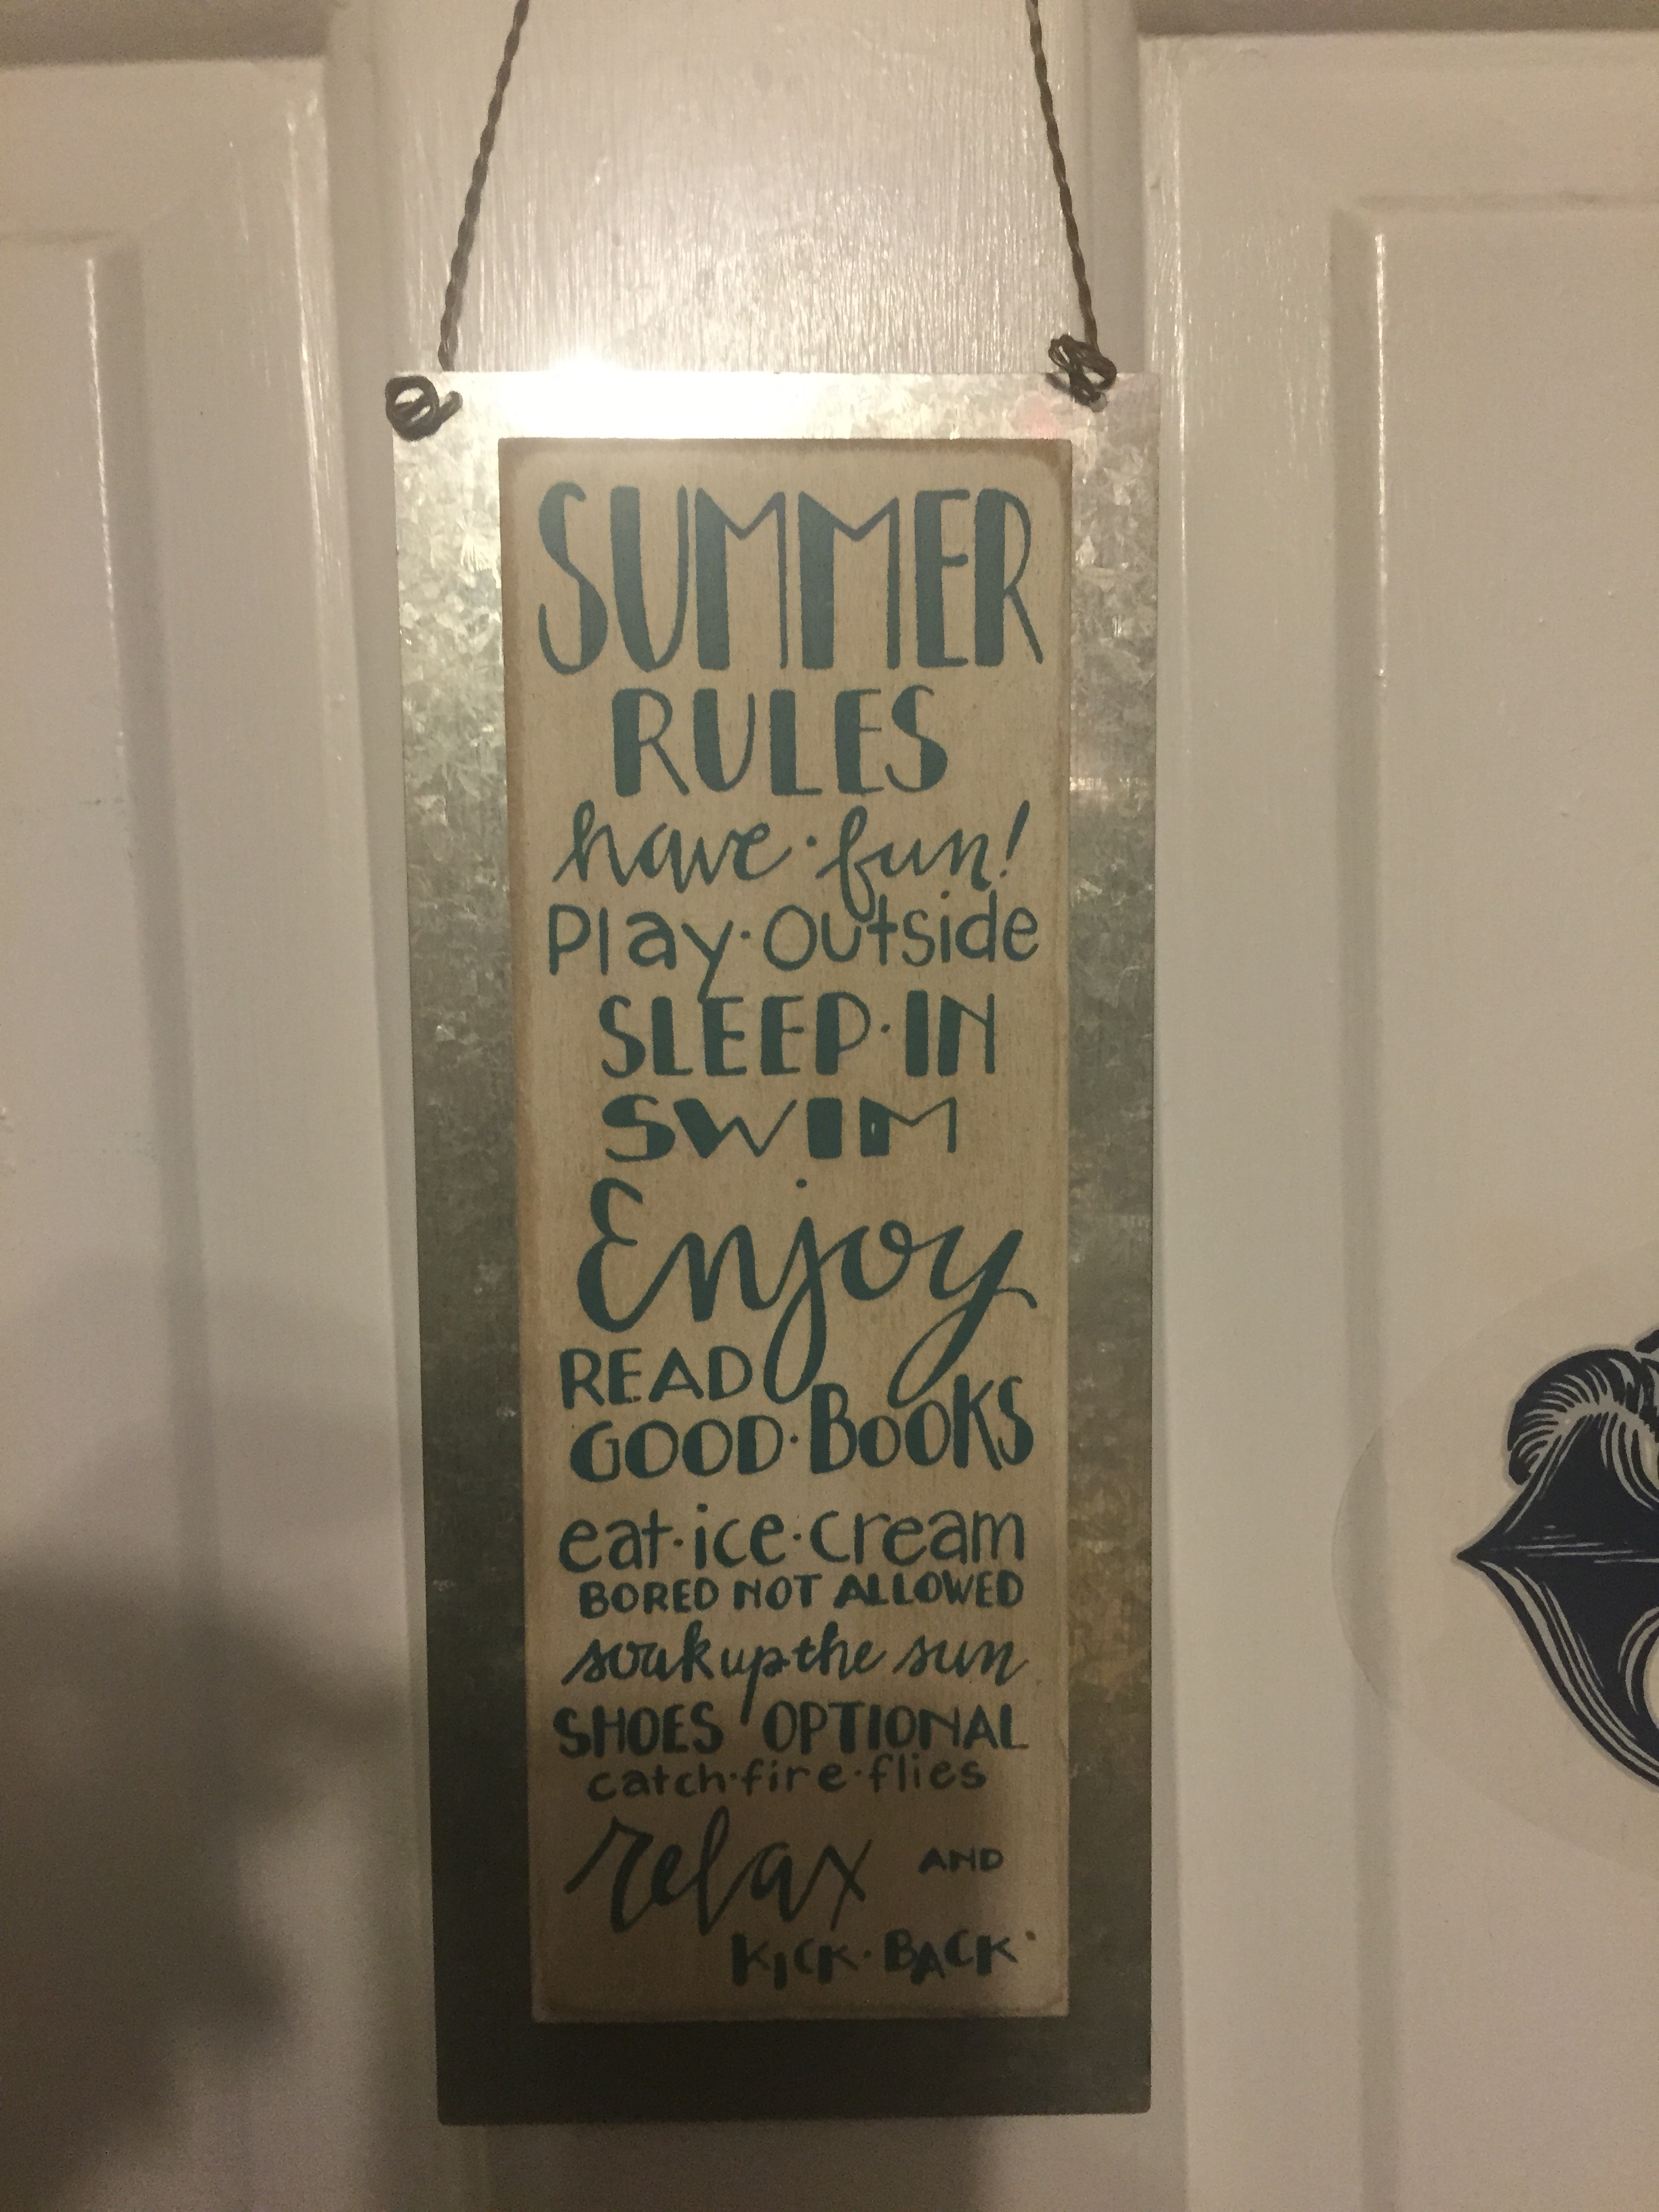 SUMMER
RULES
have·fun!
Play·Outside
SLEEP·IN
SWIM
Enjoy
READ
GOOD·BOOKS
eat·ice·cream
BORED NOT ALLOWED
soak up the sun
SHOES OPTIONAL
catch·fire·flies
relax AND
KICK·BACK·